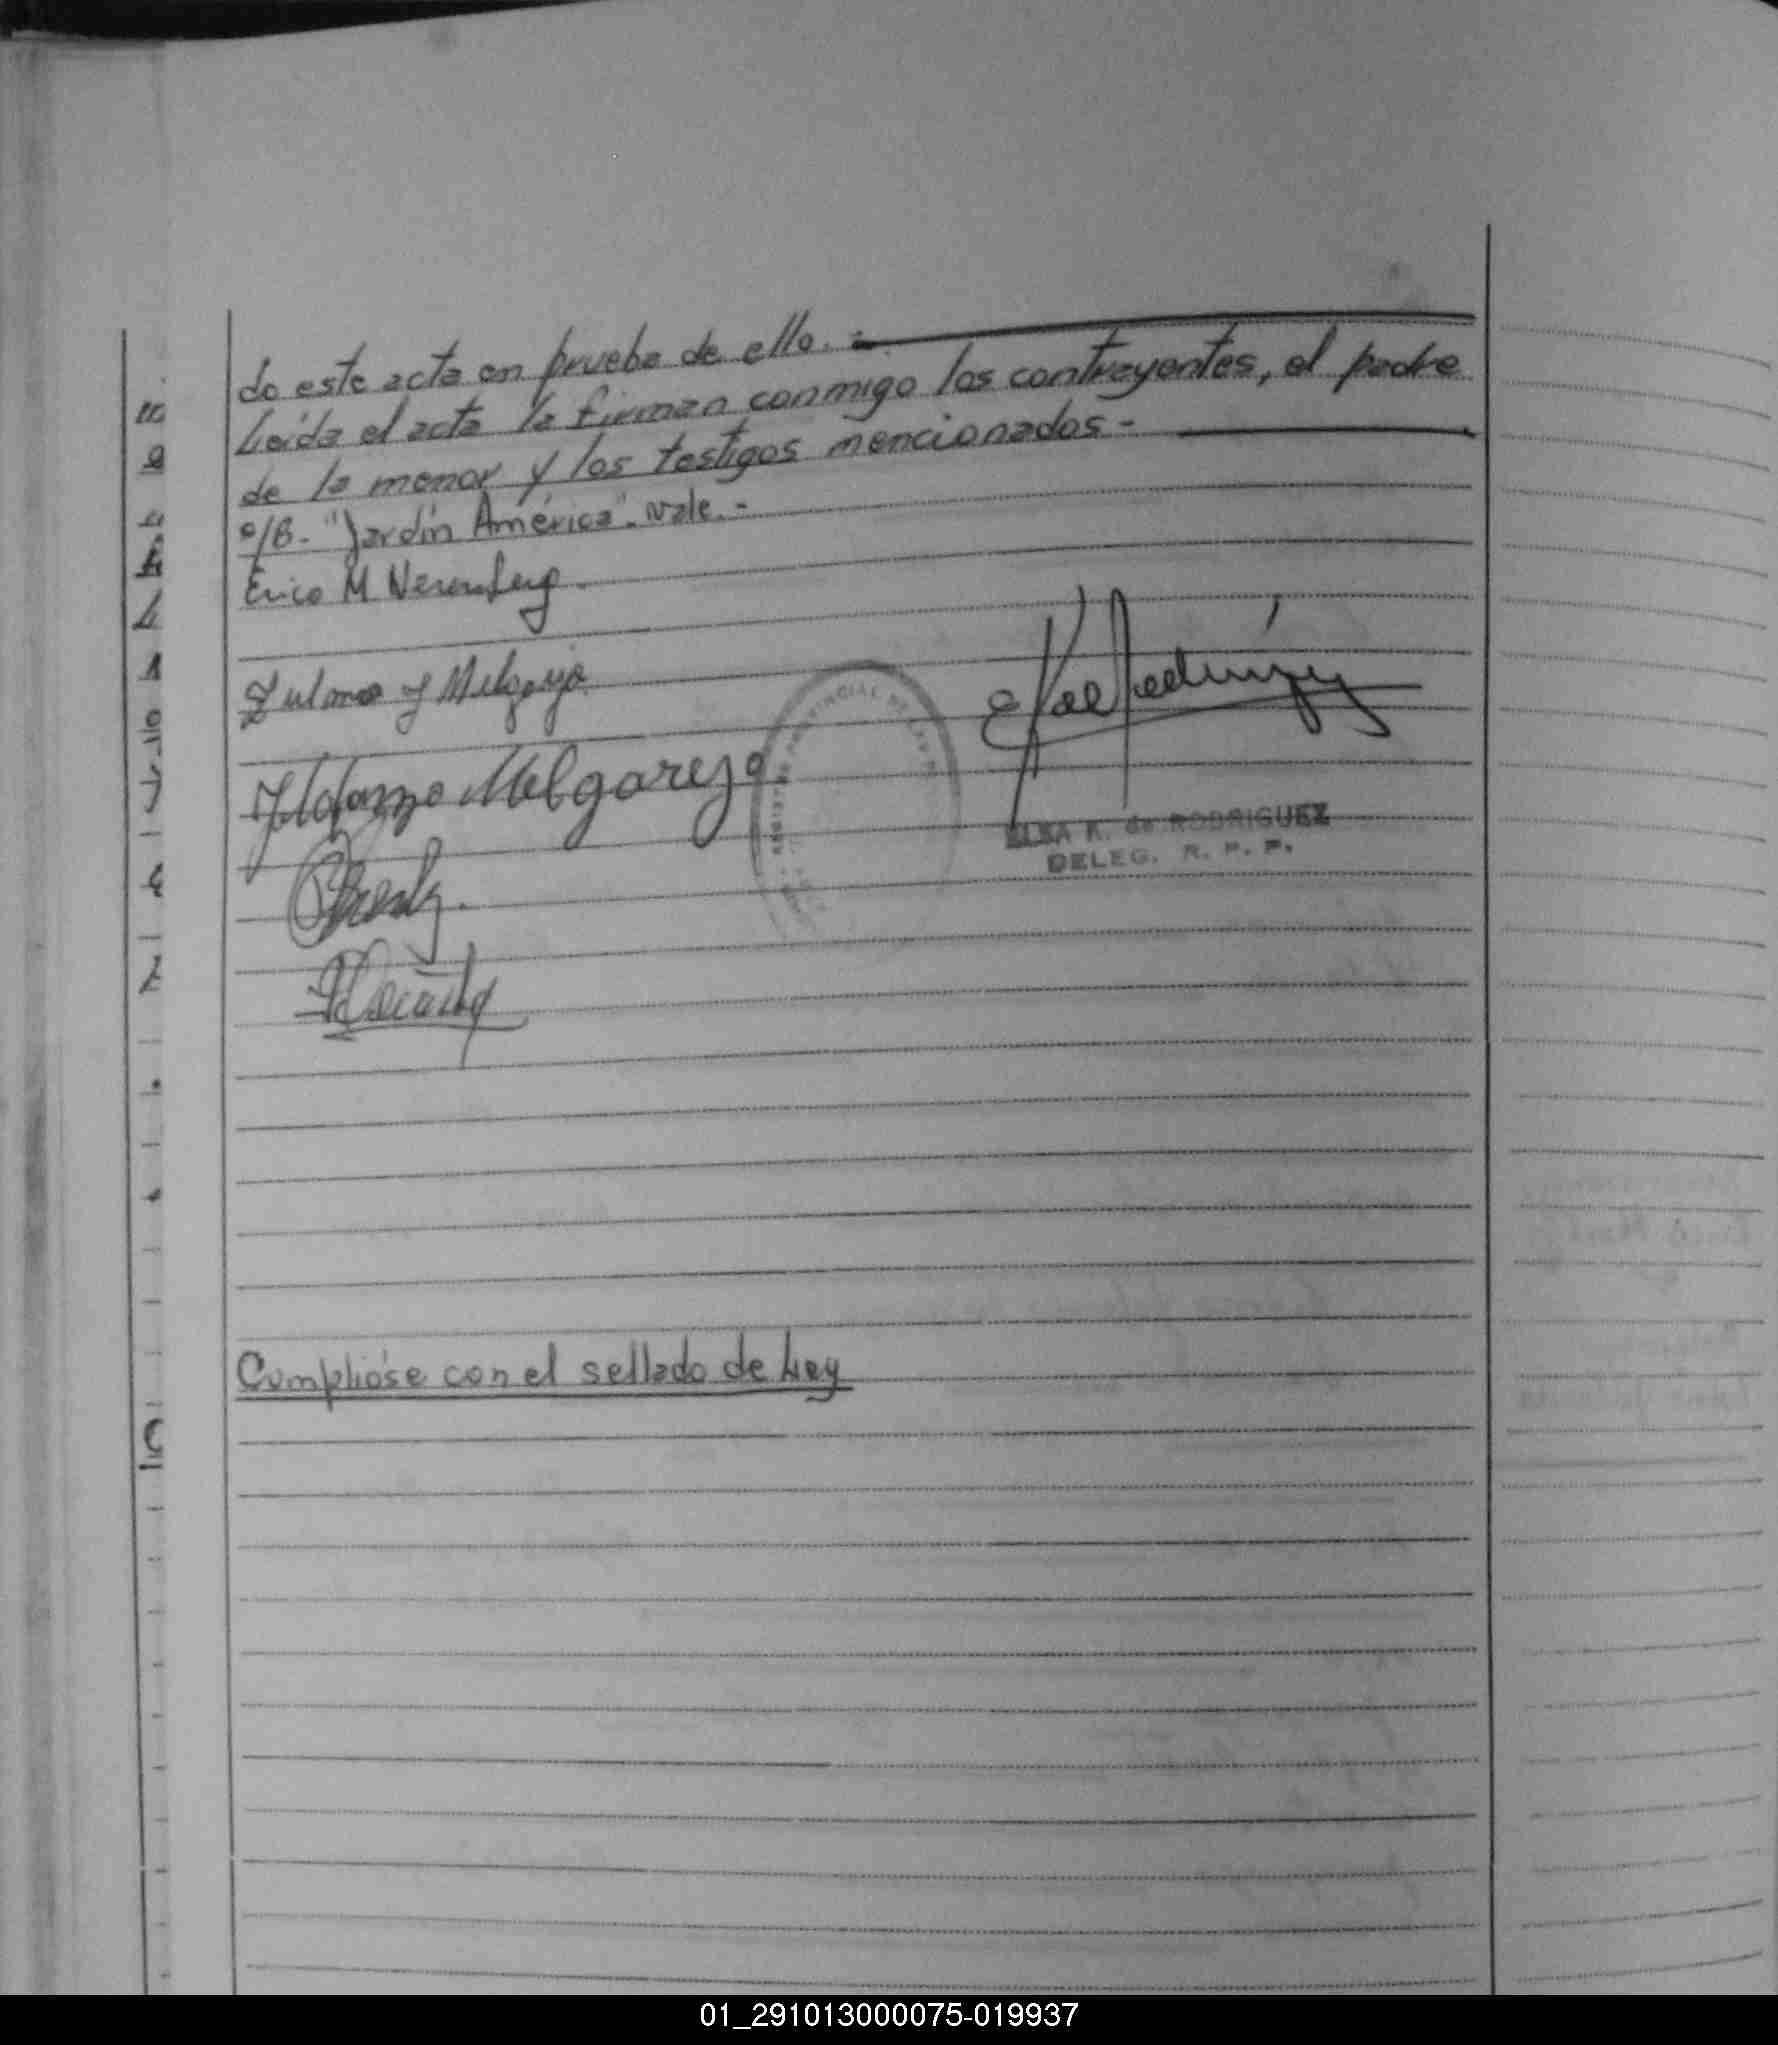 do este acta en prueba de ello.-
Leída el acta la firman conmigo los contrayentes, el padre
de la menor y los testigos mencionados-
e/B. "Jardín América". vale.-
Erico M
Zulma Y Melgarejo
Ildefonzo Melgarejo
ELKA K. de RODRIGUEZ
DELEG. R. P. P.
Cumplióse con el sellado de Ley
01_291013000075-019937